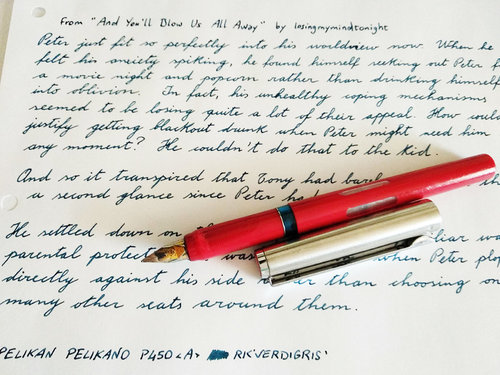 from "And You'll Blow Us All Away" by losingmymindtonight
Peter just fit so perfectly into his worldview now. When he
felt his anxiety spiking, he found himself seeking out Peter f
a movie night and popcorn rather than drinking himself
into oblivion. In fact, his unhealthy coping mechanisms
seemed to be losing quite a lot of their appeal. How would
justify getting blackout drunk when Peter might need him
any moment? He couldn't do that to the kid.
And so it transpired that Tony had bar the
a second glance since Peter ha
He settled down on liar wa
parental protect was when Peter plop
directly against his side than choosing on
many other seats around them.
PELIKAN PELIKANO P450 <A> RK 'VERDIGRIS'